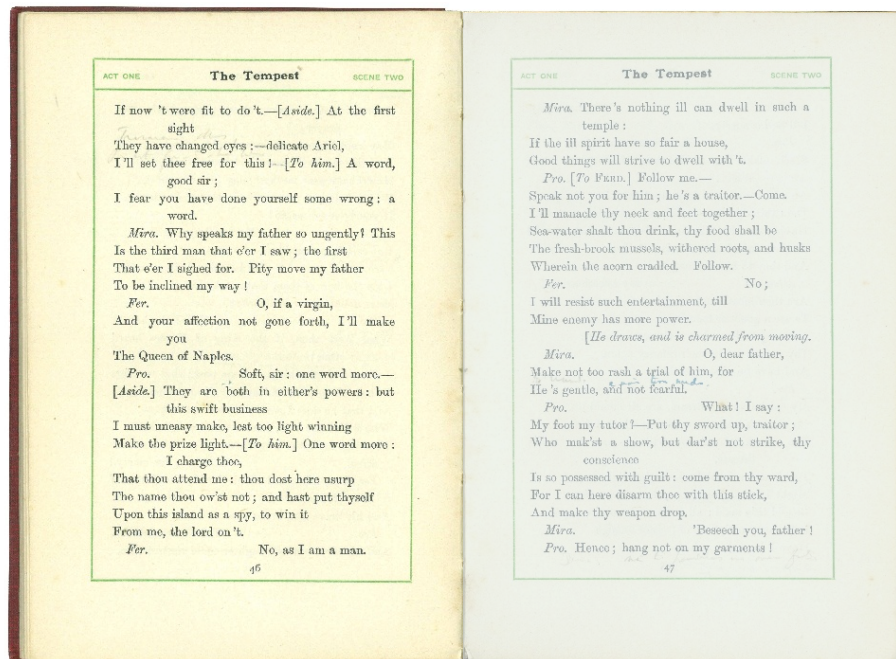 ACT ONE The Tempest SCENE TWO
If now 't were fit to do 't.—[Aside.] At the first
sight
They have changed eyes :—delicate Ariel,
I 'll set thee free for this !—[To him.] A word,
good sir ;
I fear you have done yourself some wrong : a
word.
Mira. Why speaks my father so ungently? This
Is the third man that e'er I saw ; the first
That e'er I sighed for. Pity move my father
To be inclined my way !
Fer. O, if a virgin,
And your affection not gone forth, I 'll make
you
The Queen of Naples.
Pro. Soft, sir : one word more.—
[Aside.] They are both in either's powers : but
this swift business
I must uneasy make, lest too light winning
Make the prize light.—[To him.] One word more :
I charge thee,
That thou attend me : thou dost here usurp
The name thou ow'st not ; and hast put thyself
Upon this island as a spy, to win it
From me, the lord on 't.
Fer. No, as I am a man.
46
ACT ONE The Tempest SCENE TWO
Mira. There 's nothing ill can dwell in such a
temple :
If the ill spirit have so fair a house,
Good things will strive to dwell with 't.
Pro. [To FERD.] Follow me.—
Speak not you for him ; he 's a traitor.—Come.
I 'll manacle thy neck and feet together ;
Sea-water shalt thou drink, thy food shall be
The fresh-brook mussels, withered roots, and husks
Wherein the acorn cradled. Follow.
Fer. No ;
I will resist such entertainment, till
Mine enemy has more power.
[He draws, and is charmed from moving.
Mira. O, dear father,
Make not too rash a trial of him, for
He 's gentle, and not fearful.
Pro. What ! I say :
My foot my tutor ?—Put thy sword up, traitor ;
Who mak'st a show, but dar'st not strike, thy
conscience
Is so possessed with guilt : come from thy ward,
For I can here disarm thee with this stick,
And make thy weapon drop.
Mira. 'Beseech you, father !
Pro. Hence ; hang not on my garments !
47